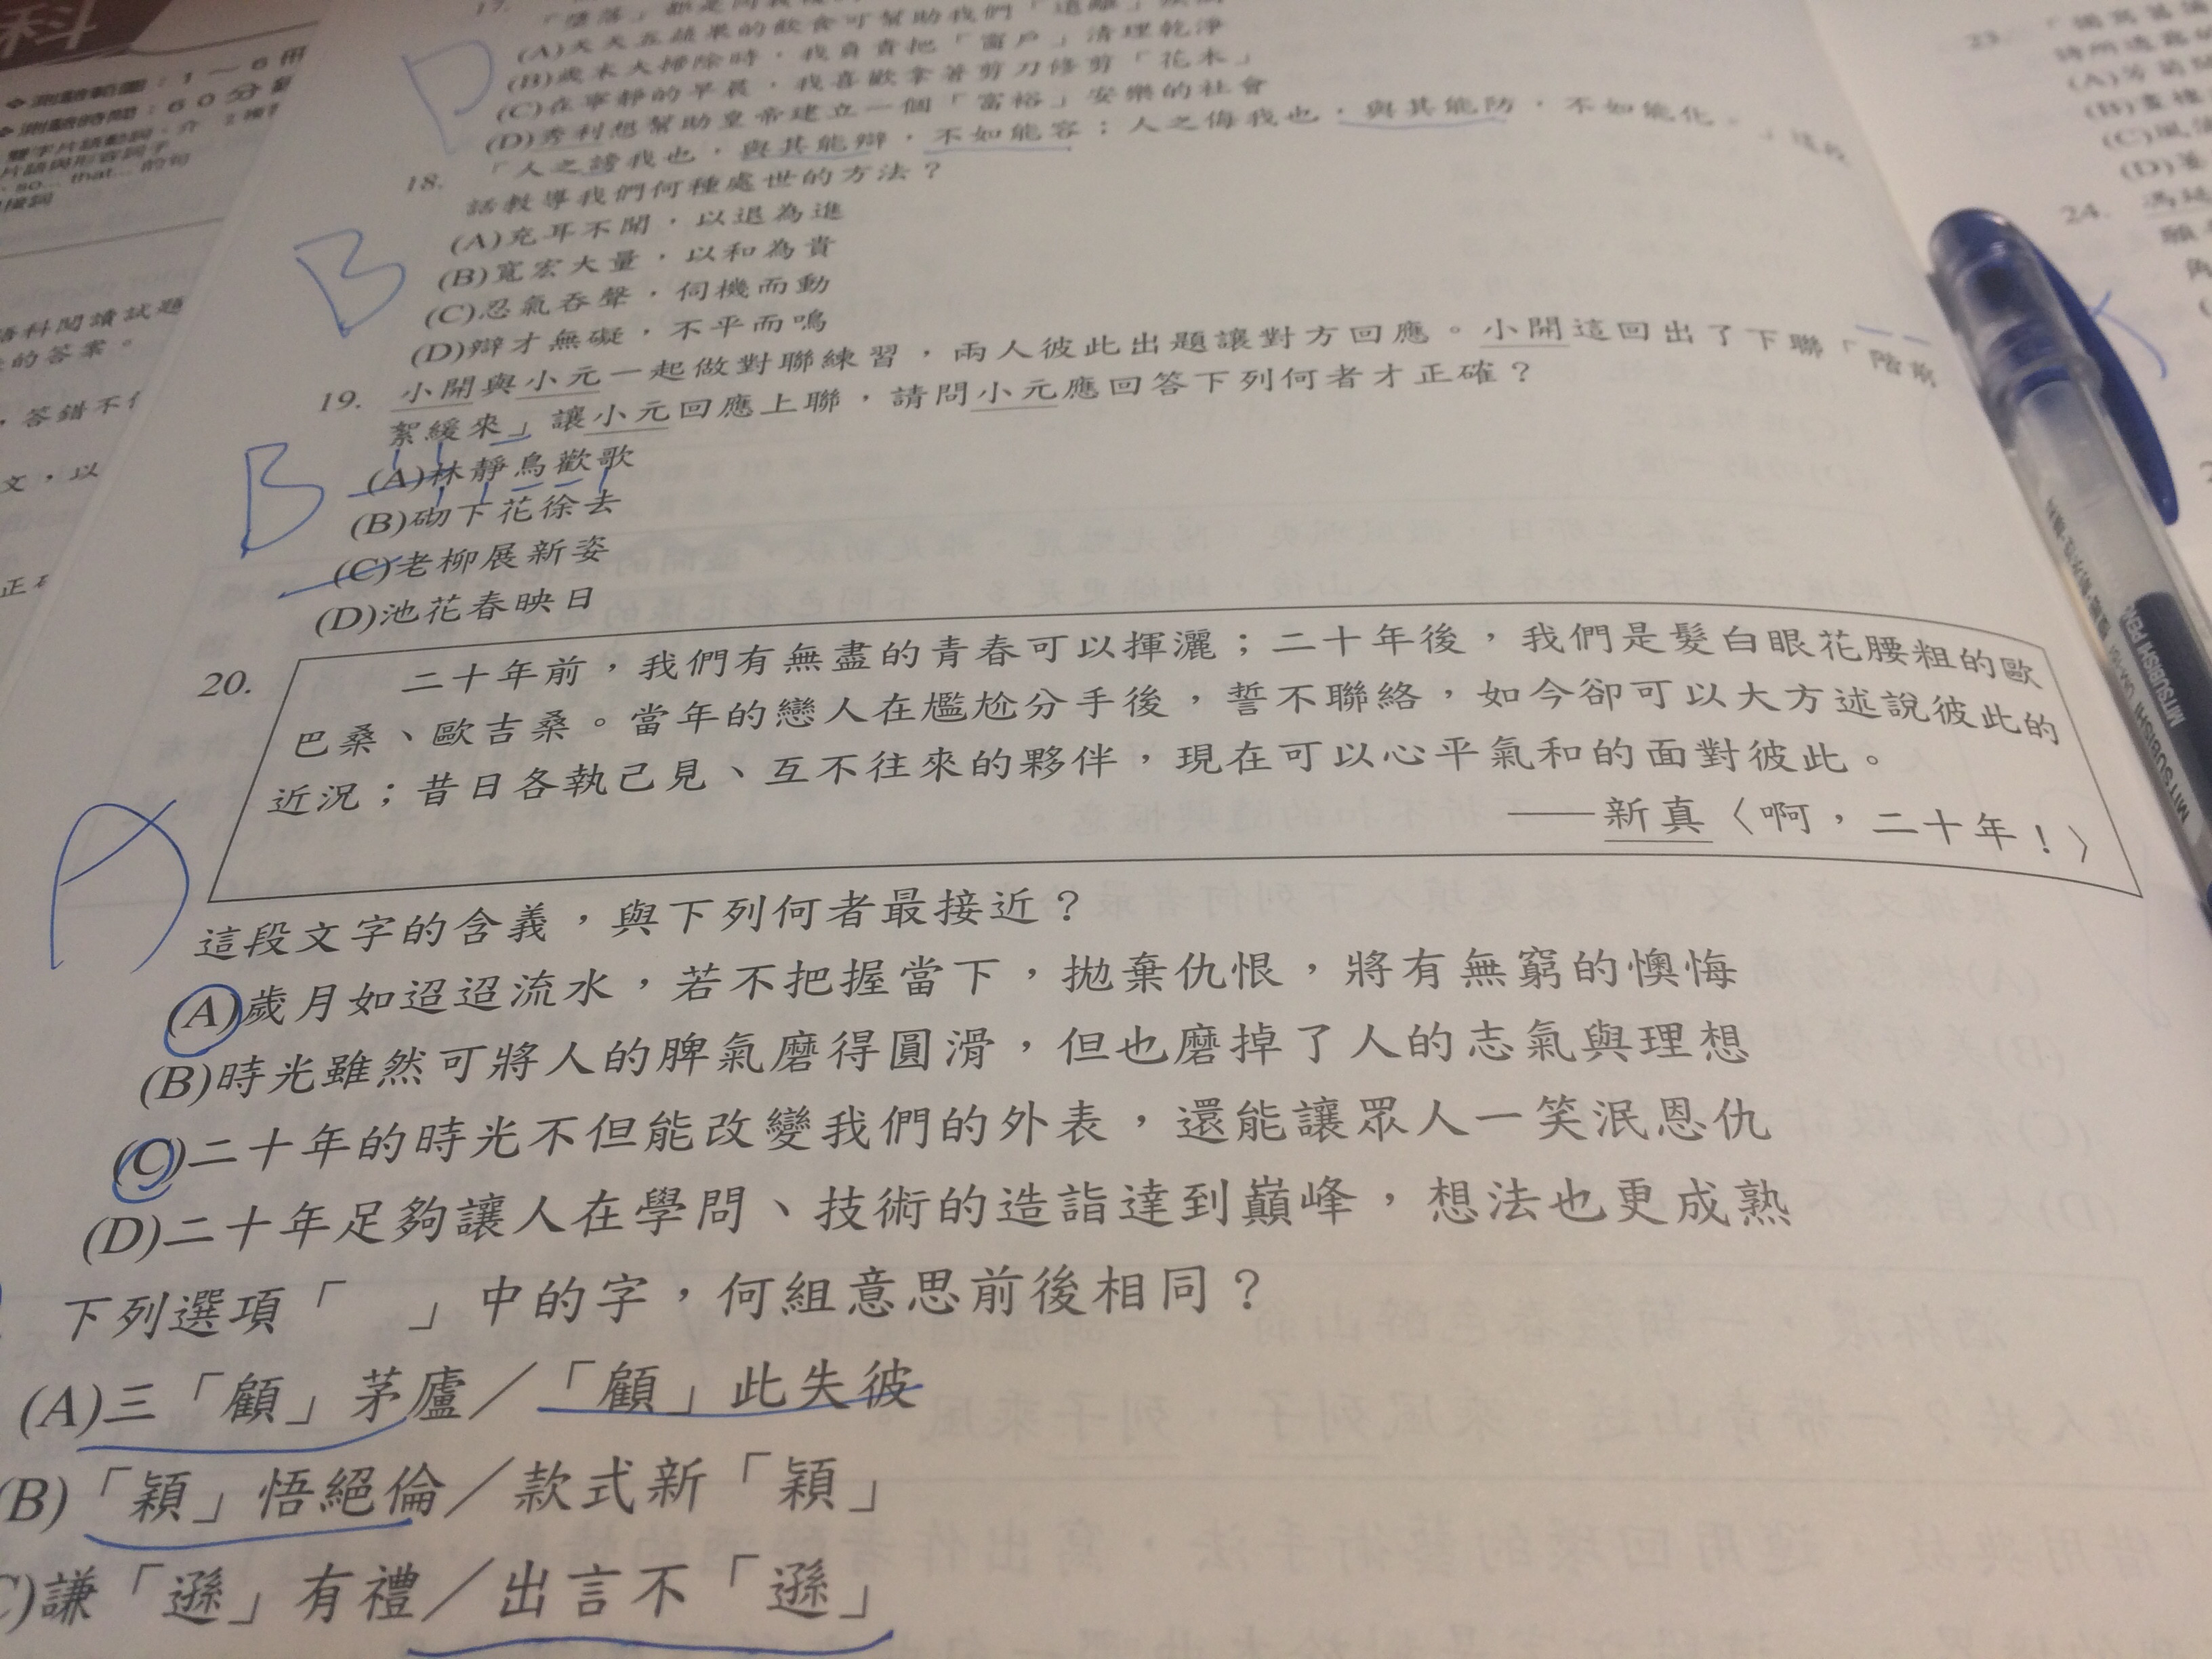 科
測驗範圍：1～6冊
測驗時間：60分
語科閱讀試題
的答案。
，答錯不
文，以
17.
(A)天天五蔬果的飲食可幫助我們「遠離」
(B)歲末大掃除時，我負責把「窗戶」清理乾淨
(C)在寧靜的早晨，我喜歡拿著剪刀修剪「花木」
(D)秀利想幫助皇帝建立一個「富裕」安樂的社會
D
18. 「人之謗我也，與其能辯，不如能容；人之侮我也，與其能防，不如能化。」這段
話教導我們何種處世的方法？
(A)充耳不聞，以退為進
(B)寬宏大量，以和為貴
(C)忍氣吞聲，伺機而動
(D)辯才無礙，不平而鳴
B
19. 小開與小元一起做對聯練習，兩人彼此出題讓對方回應。小開這回出了下聯「階前
絮緩來」讓小元回應上聯，請問小元應回答下列何者才正確？
(A)林靜鳥歡歌
(B)砌下花徐去
(C)老柳展新姿
(D)池花春映日
B
20.
二十年前，我們有無盡的青春可以揮灑；二十年後，我們是髮白眼花腰粗的歐
巴桑、歐吉桑。當年的戀人在尷尬分手後，誓不聯絡，如今卻可以大方述說彼此的
近況；昔日各執己見、互不往來的夥伴，現在可以心平氣和的面對彼此。
——新真〈啊，二十年！〉
這段文字的含義，與下列何者最接近？
(A)歲月如迢迢流水，若不把握當下，拋棄仇恨，將有無窮的懊悔
(B)時光雖然可將人的脾氣磨得圓滑，但也磨掉了人的志氣與理想
(C)二十年的時光不但能改變我們的外表，還能讓眾人一笑泯恩仇
(D)二十年足夠讓人在學問、技術的造詣達到巔峰，想法也更成熟
A
下列選項「　」中的字，何組意思前後相同？
(A)三「顧」茅廬／「顧」此失彼
(B)「穎」悟絕倫／款式新「穎」
C)謙「遜」有禮／出言不「遜」
23.
(A)
(B)
(C)
(D)
24.
MITSUBISHI PEN